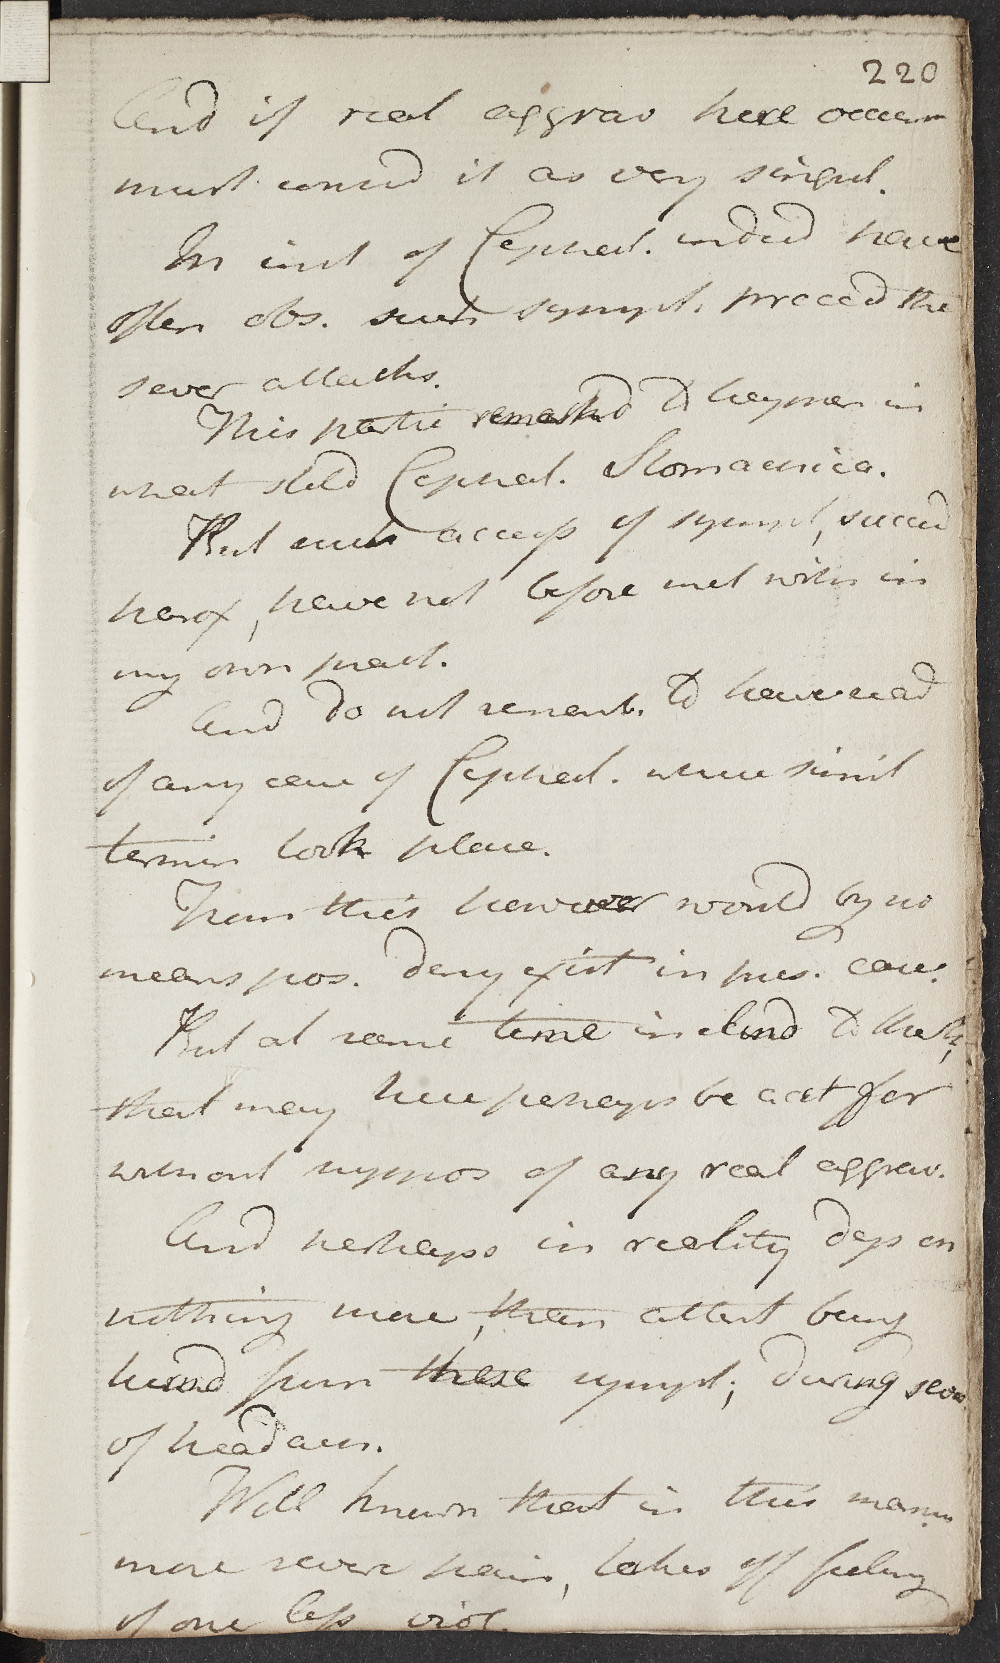 220
And if real aggrav here occur
must consid it as very singul.
In inst of Cephal. indeed have
often obs. such sympt. preced the
sever attacks.
This partic remarkd to happen in
what stild Cephal. Stomachica.
But such access of sympt, succeed
herof, have not before met with in
my own pract.
And do not rememb. to have read
of any case of Cephal. where simil
termin took place.
From this however would by no
means pos. deny exist in pres. case.
But at same time inclind to think,
that may here perhaps be acct for
without suppos of any real aggrav.
And perhaps in reality dep on
nothing more, than attent being
turnd from these sympt; during sever
of headach.
Well known that in this mann
more severe pain, takes off feeling
of one less viol.